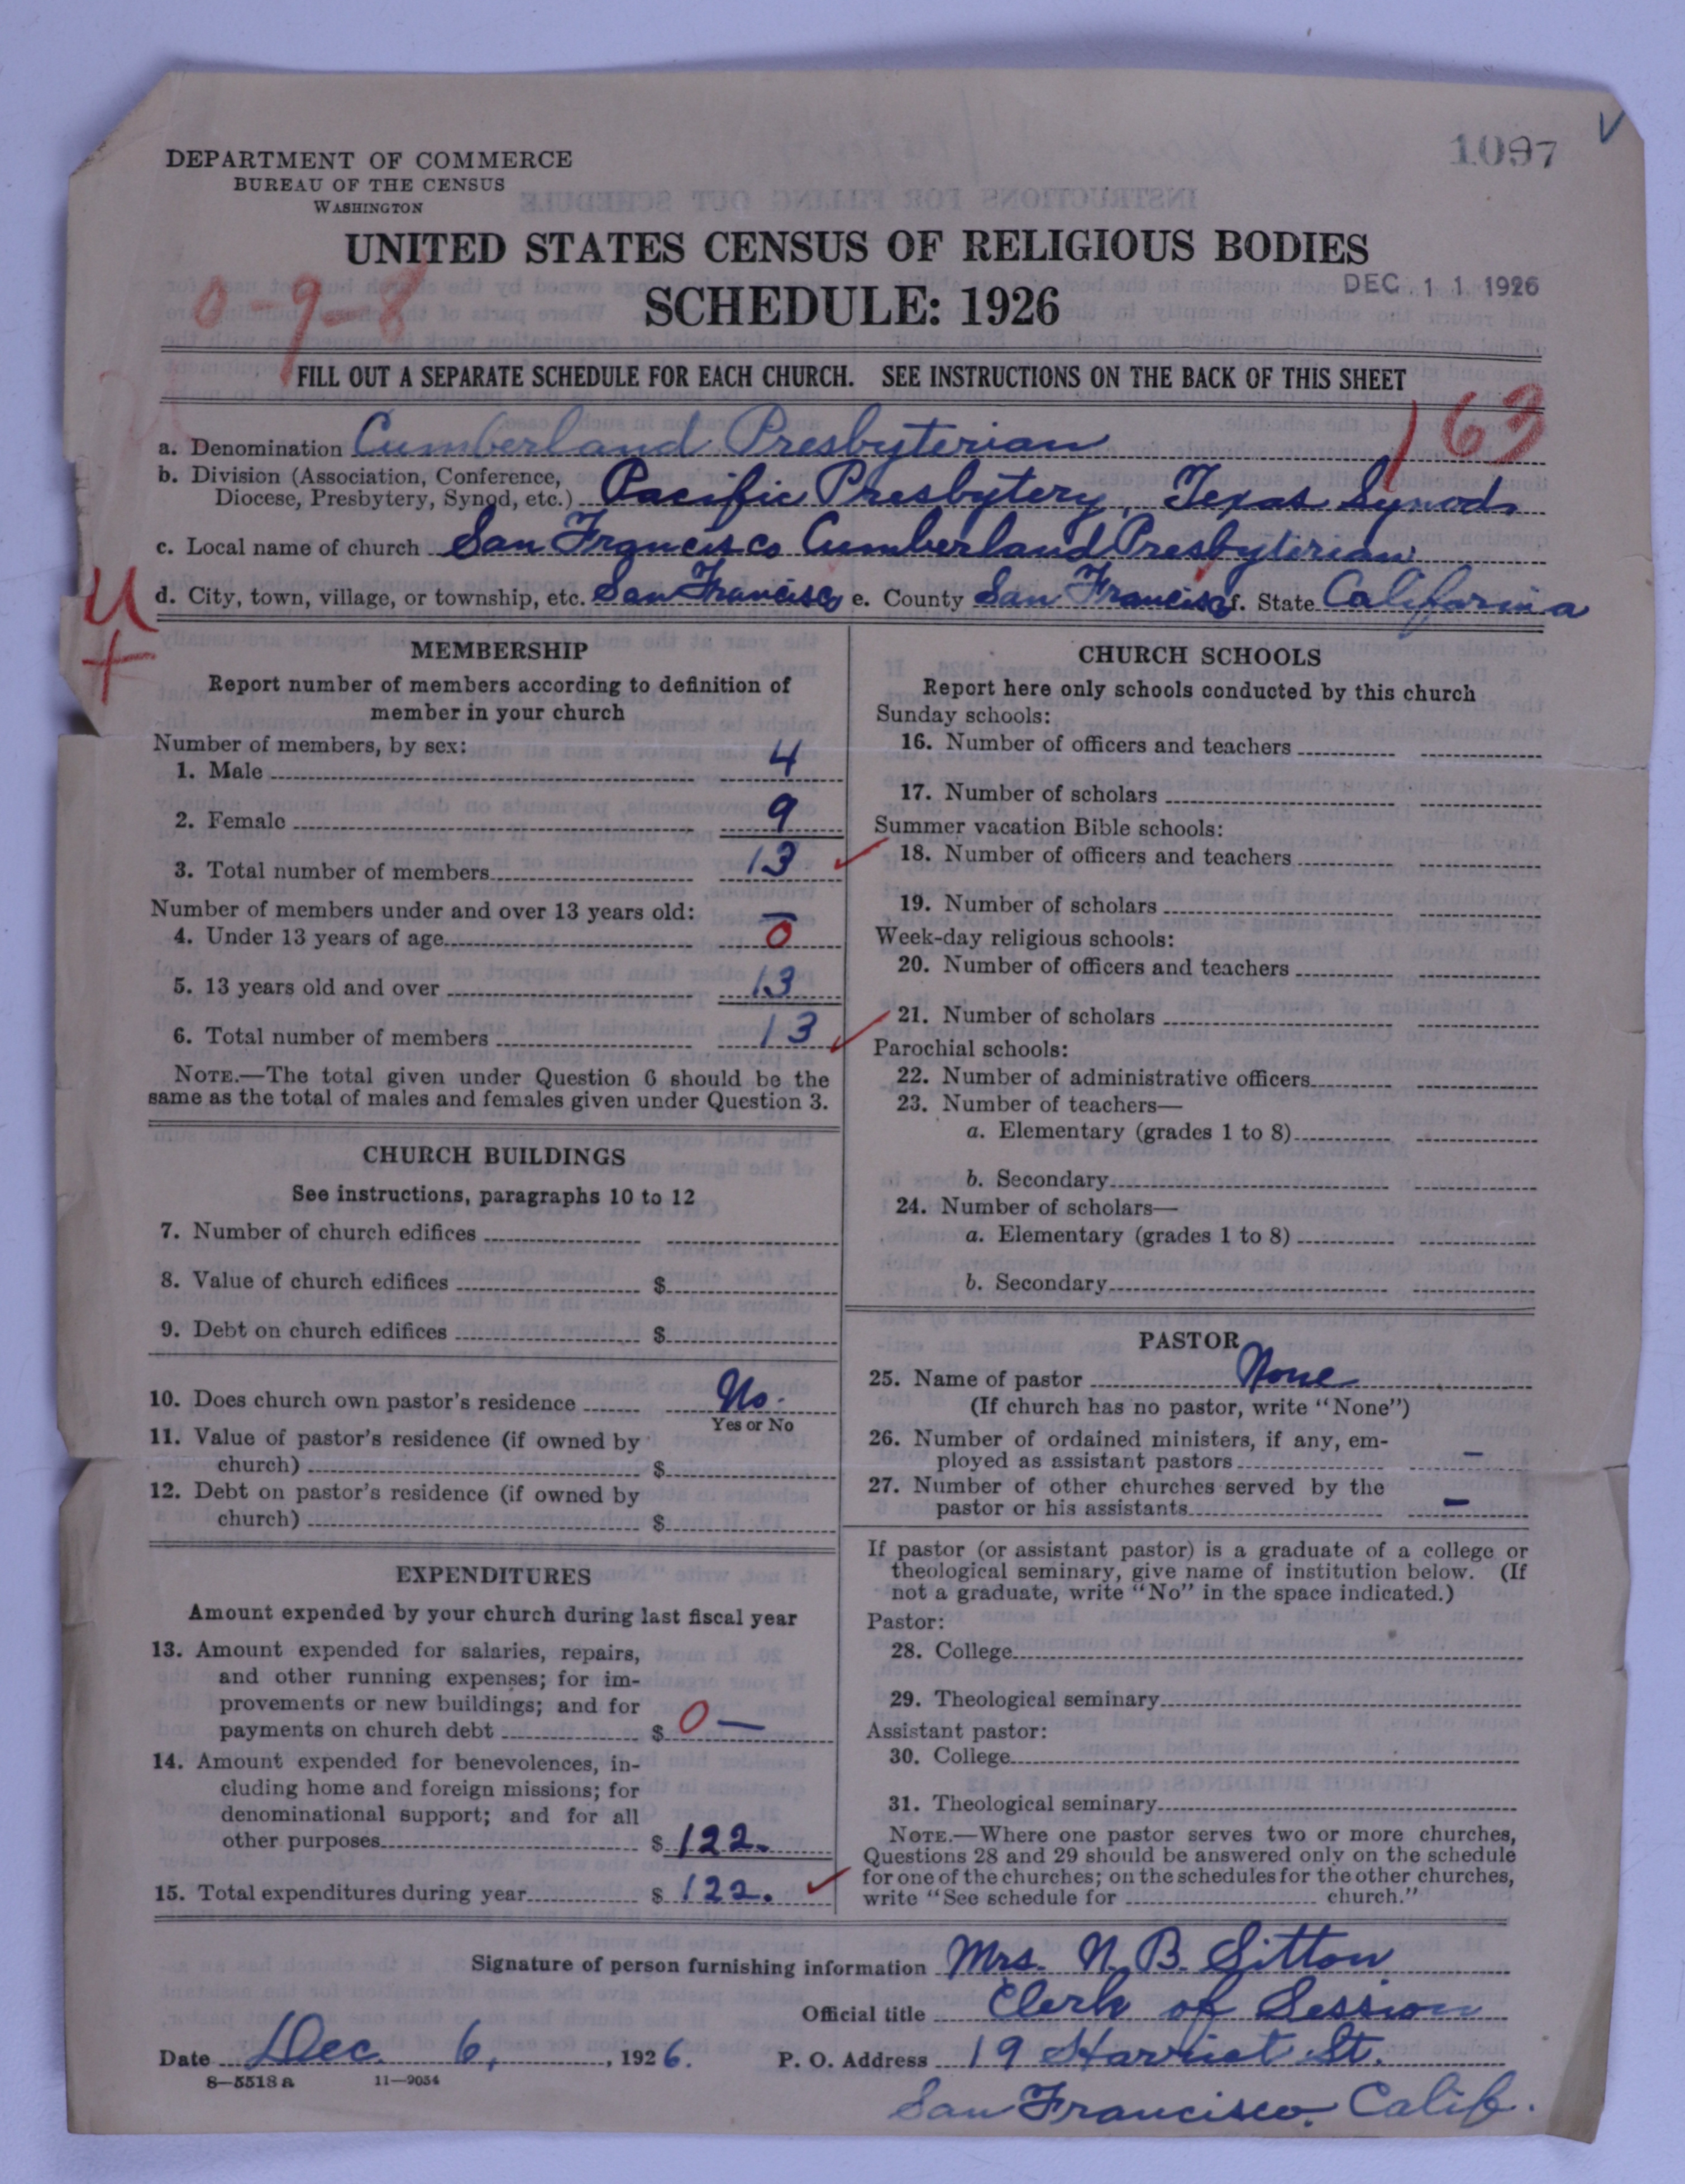 1097
DEPARTMENT OF COMMERCE
BUREAU OF THE CENSUS
WASHINGTON
UNITED STATES CENSUS OF RELIGIOUS BODIES
DEC. 11 1926
0-9-8
SCHEDULE: 1926
FILL OUT A SEPARATE SCHEDULE FOR EACH CHURCH. SEE INSTRUCTIONS ON THE BACK OF THIS SHEET
163
a. Denomination Cumberland Presbyterian
b. Division (Association, Conference,
Diocese, Presbytery, Synod, etc.) Pacific Presbytery, Texas Synod
c. Local name of church San Francisco Cumberland Presbyterian
d. City, town, village, or township, etc. San Francisco e. County San Francisco f. State California
MEMBERSHIP
Report number of members according to definition of
member in your church
Number of members, by sex:
1. Male 4
2. Female 9
3. Total number of members 13
Number of members under and over 13 years old:
4. Under 13 years of age 0
5. 13 years old and over 13
6. Total number of members 13
NOTE.—The total given under Question 6 should be the
same as the total of males and females given under Question 3.
CHURCH BUILDINGS
See instructions, paragraphs 10 to 12
7. Number of church edifices
8. Value of church edifices $
9. Debt on church edifices $
10. Does church own pastor's residence No.
Yes or No
11. Value of pastor's residence (if owned by
church) $
12. Debt on pastor's residence (if owned by
church) $
EXPENDITURES
Amount expended by your church during last fiscal year
13. Amount expended for salaries, repairs,
and other running expenses; for im-
provements or new buildings; and for
payments on church debt $ 0 —
14. Amount expended for benevolences, in-
cluding home and foreign missions; for
denominational support; and for all
other purposes $ 122.
15. Total expenditures during year $ 122.
CHURCH SCHOOLS
Report here only schools conducted by this church
Sunday schools:
16. Number of officers and teachers
17. Number of scholars
Summer vacation Bible schools:
18. Number of officers and teachers
19. Number of scholars
Week-day religious schools:
20. Number of officers and teachers
21. Number of scholars
Parochial schools:
22. Number of administrative officers
23. Number of teachers—
a. Elementary (grades 1 to 8)
b. Secondary
24. Number of scholars—
a. Elementary (grades 1 to 8)
b. Secondary
PASTOR
25. Name of pastor None
(If church has no pastor, write "None")
26. Number of ordained ministers, if any, em-
ployed as assistant pastors —
27. Number of other churches served by the
pastor or his assistants —
If pastor (or assistant pastor) is a graduate of a college or
theological seminary, give name of institution below. (If
not a graduate, write "No" in the space indicated.)
Pastor:
28. College
29. Theological seminary
Assistant pastor:
30. College
31. Theological seminary
NOTE.—Where one pastor serves two or more churches,
Questions 28 and 29 should be answered only on the schedule
for one of the churches; on the schedules for the other churches,
write "See schedule for church."
Signature of person furnishing information Mrs. N. B. Sitton
Official title Clerk of Session
Date Dec 6, , 1926. P. O. Address 19 Harriet St.
8—5518 a 11—9034
San Francisco. Calif.